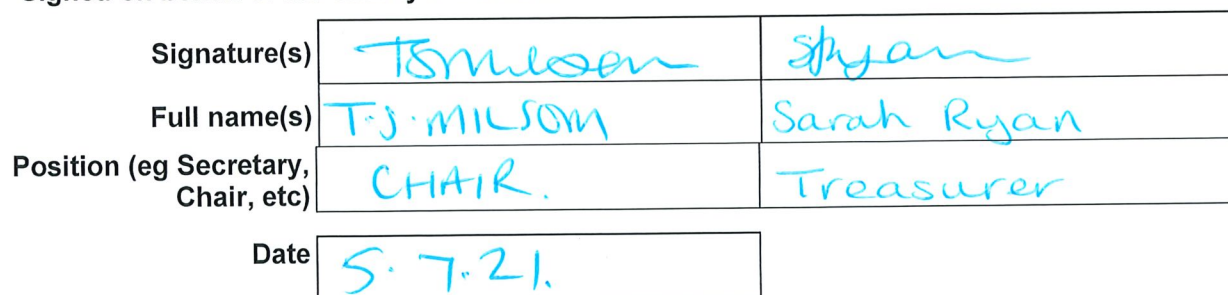 Signature(s) TJMilsom SRyan
Full name(s) T.J. MILSOM Sarah Ryan
Position (eg Secretary, Chair, etc) CHAIR. Treasurer
Date 5.7.21.